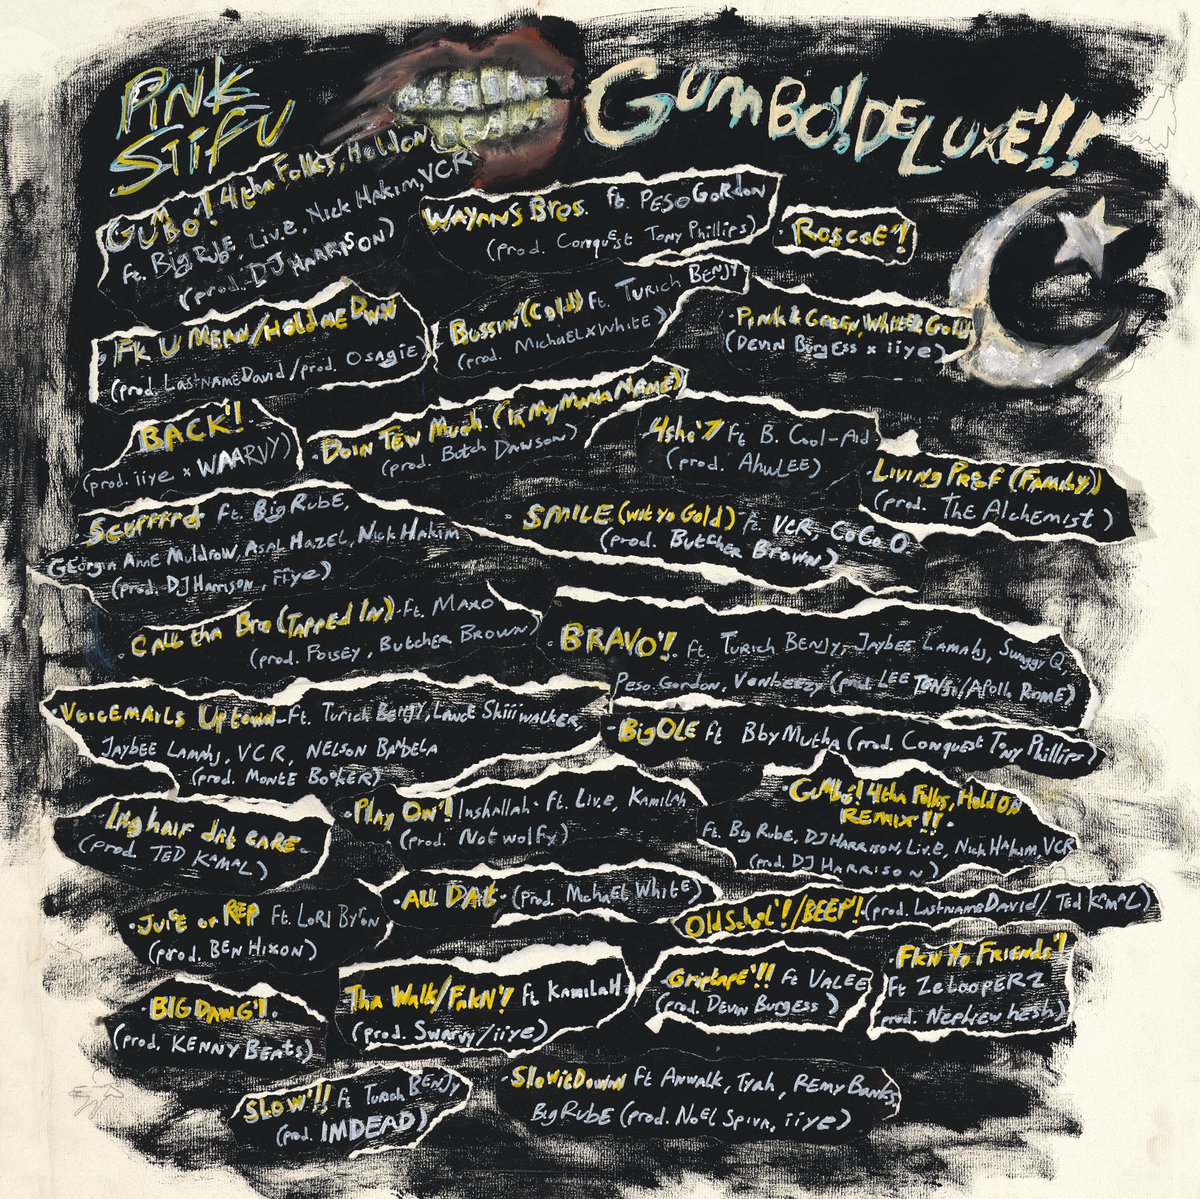 PiNK
SiiFU
GUMBO'! DELUXE'!!
GUMBO'! 4tha Folks, Hold on
ft. Big RUBE, Liv.e, Nick Hakim, VCR
(prod. DJ HARRISON)
WAYANS BROS. ft. PESO GORDON
(prod. Conquest Tony Phillips)
· ROSCOE'!
· FK U MEAN/HOLD ME DWN
(prod. LastnameDavid/prod. Osagie)
BUSSIN' (Cold) ft. TURICH BENJY
(prod. MichaelxWhite)
· PiNK & GREEN, WHITE & GOLD
(DEVIN BURGESS x iiye)
BACK'!
(prod. iiye x WAARVY)
· DOIN TEW MUCH (IN MY MAMA NAME)
(prod. Butch Dawson)
4sho'! ft B. Cool-Aid
(prod. AhwLEE)
· LIVING PROOF (FAMILY)
(prod. The Alchemist)
· Scurrrrd ft. Big RUBE,
GEORGIA ANNE MULDROW, ASAL HAZEL, Nick Hakim
(prod. DJ Harrison, iiye)
· SMILE (wit yo Gold) ft. VCR, CoCo O
(prod. Butcher Brown)
· CALL tha Bro (TAPPED IN) · ft. MAXO
(prod. FOISEY, BUTCHER BROWN)
· BRAVO'! ft. TURICH BENJY, JAYBEE LAMAHJ, Swaggy Q
PESO GORDON, VONBEEZY (prod. LEE TENSEI/APOLLO ROME)
· VOICEMAILS UPTOWN - ft. TURICH BENJY, LANCE SKIIIWALKER,
JAYBEE LAMAHJ, VCR, NELSON BANDELA
(prod. MONTE BOOKER)
· BIG OLE ft BbyMutha (prod. Conquest Tony Phillips)
· lng hair dnt care
(prod. TED KAMAL)
· PLAY ON'! Inshallah · ft. Liv.e, Kamilah
(prod. Notwolfy)
· GUMBO'! 4tha Folks, Hold ON
REMIX'!! ·
ft. Big Rube, DJ HARRISON, Liv.e, Nick Hakim, VCR
(prod. DJ HARRISON)
· JUICE or REP ft. LORD BYRON
(prod. BEN HIXON)
· ALL DAT · (prod. Michael White)
OLD School'!/BEEP'! (prod. LastnameDavid/TED KAMAL)
· BIG DAWG'! ·
(prod. KENNY Beats)
Tha Walk/FAKN'! ft KamilaH
(prod. Swarvy/iiye)
· Griptape'!! ft VALEE
(prod. DEVIN BURGESS)
· FKN Yo FRIENDS'!
ft ZelooperZ
prod. Nephew hesh)
SLOW'!! ft TURICH BENJY
(prod. IMDEAD)
· SlowitDown ft Anwalk, Tyah, REMY BANKS,
Big RUBE (prod. NOEL Spiva, iiye)